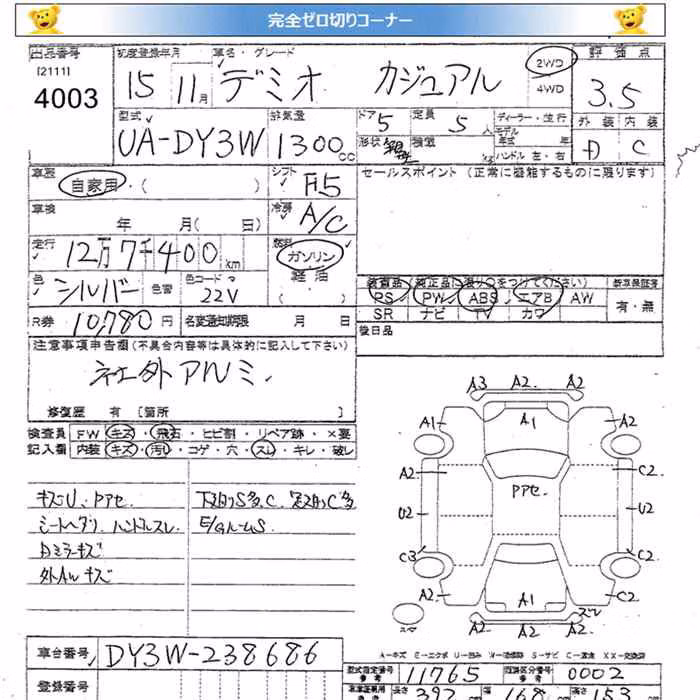 完全ゼロ切りコーナー
出品番号 初度登録年月 車名・グレード 2WD 評価点
[2111] 4003 15 11月 デミオ カジュアル 4WD 3.5
型式 排気量 ドア 定員 ディーラー・並行 外装 内装
UA-DY3W 1300cc 5 5人 モデル年式 年 D C
形状 積載 kg ハンドル 左・右
車歴 シフト セールスポイント(正常に機能するものに限ります)
自家用・( ) F5
車検 冷房
年 月(日) A/C
走行 燃料
12万7千400km ガソリン
軽油
色 色替 色コード 装備品(純正品に限り○をつけてください) 新車保証書
シルバー 22V PS PW ABS エアB AW 有・無
R券 10,780円 名変通知期限 月 日 SR ナビ TV カワ
注意事項申告欄(不具合内容等は具体的に記入して下さい) 後日品
社外アルミ
修復歴 有 [箇所 ]
検査員 FW キズ・飛石・ヒビ割・リペア跡・×要
記入欄 内装 キズ・汚れ・コゲ・穴・スレ・キレ・破レ
キズU、Pアセ 下廻りS多、C
シートヘタリ ハンドルスレ E/GルームS
Dミラーキズ
外AWキズ
A3 A2 A2
A1 A1 A2
A2 Pアセ C2
U2 U2
C3 C2
A2 A1 C2
A2 A2 A2
A-キズ E-エクボ U-凹み W-補修跡 S-サビ C-腐食 XX-交換済
車台番号 DY3W-238686
型式指定番号 11765 類別区分番号 0002
登録番号 長さ 392 幅 168 高さ 153